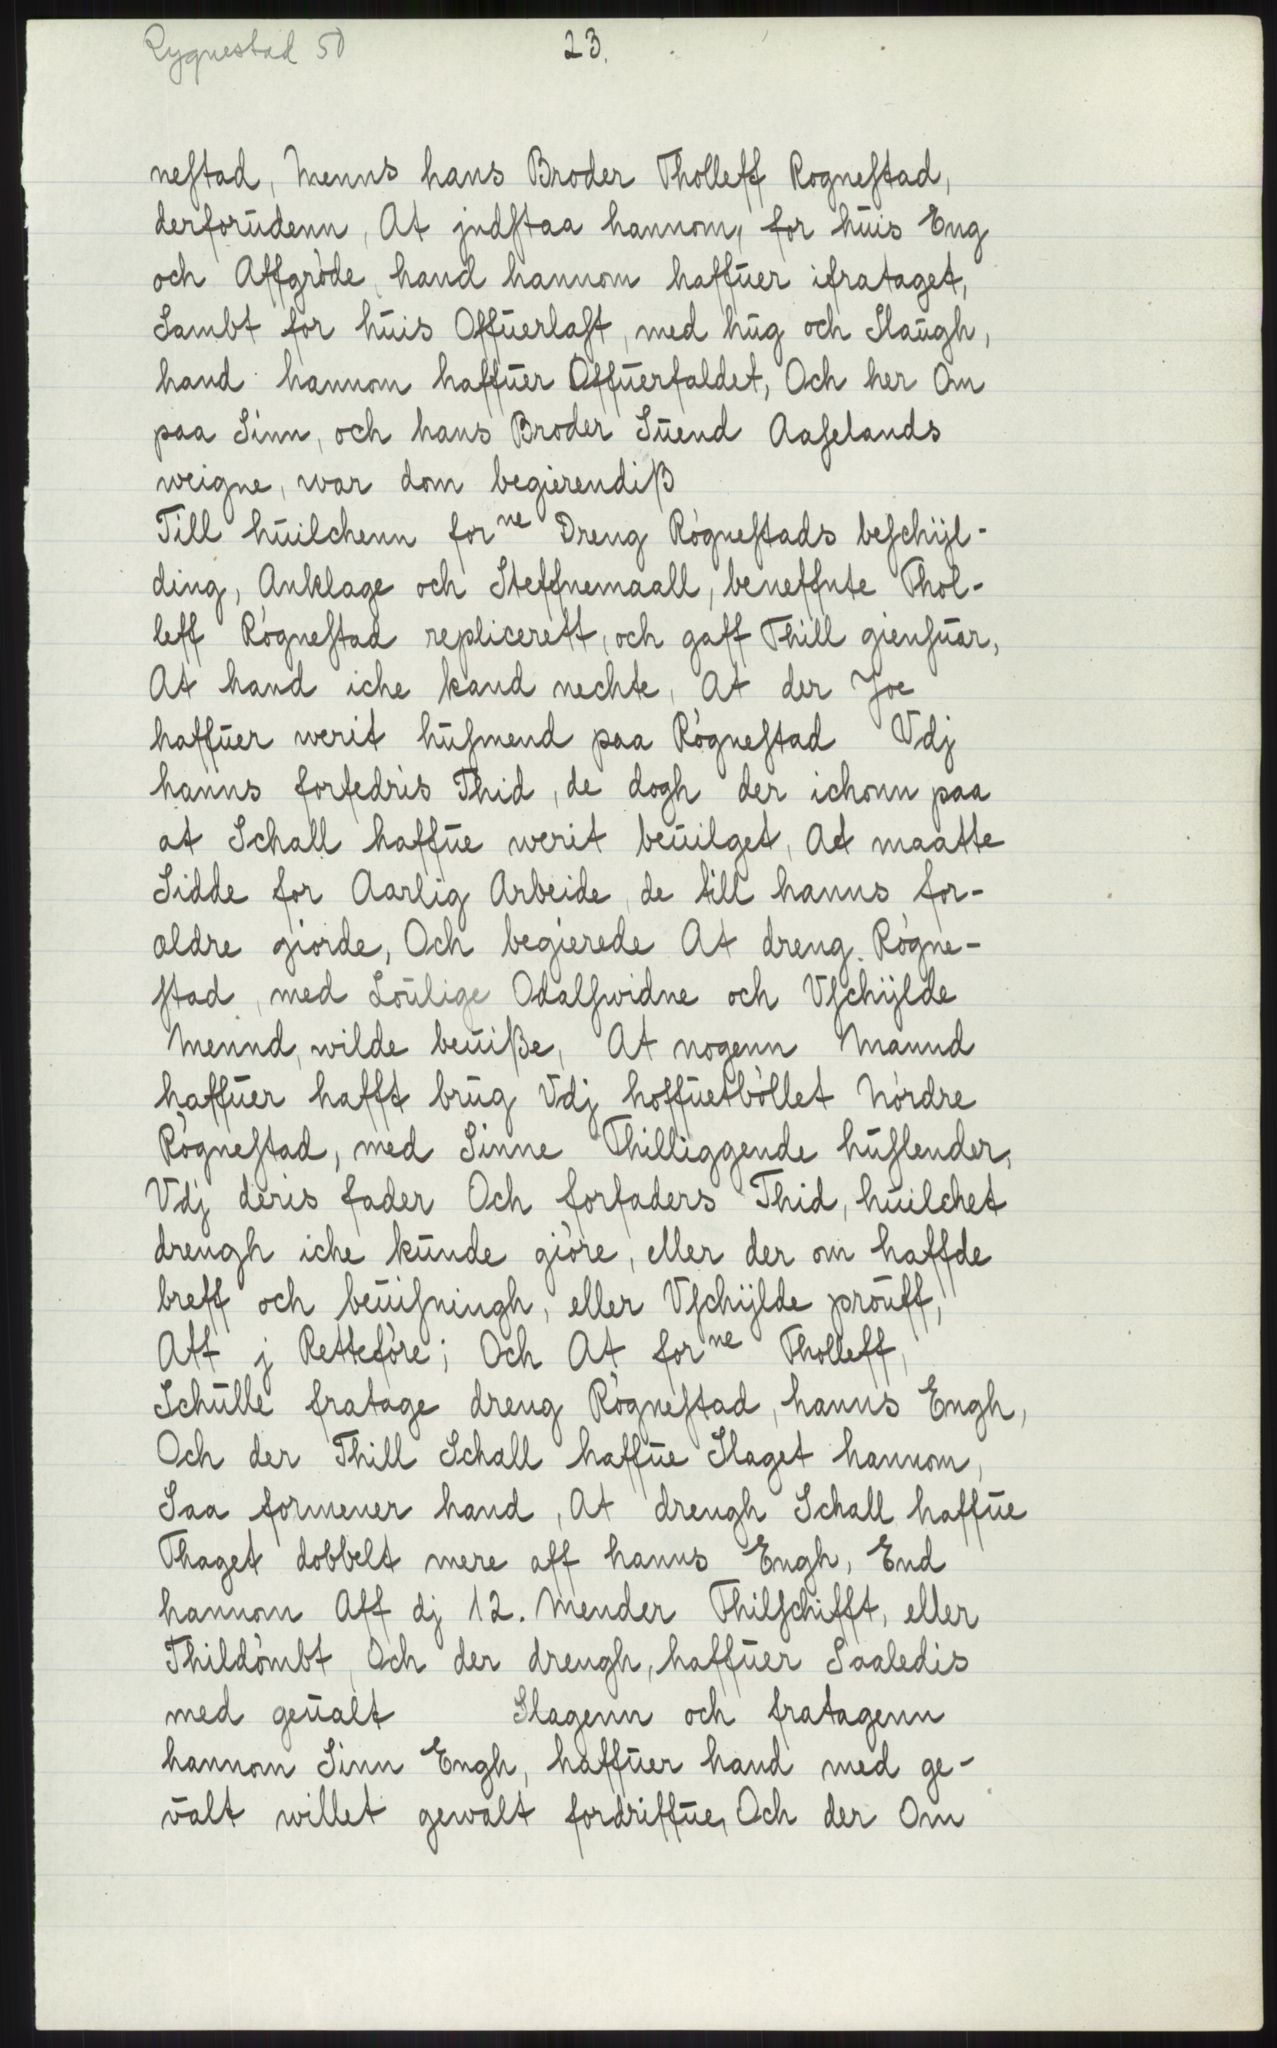 Rygnestad 50
23.
neſtad, Menns hans Broder Tholleff Rogneſtad,
derforudenn, At jndſtaa hannom, for huis Eng
och Affgròde hand hannom haffuer ifrataget,
Sambt for huis Offuerlaſt, med hug och Slaugh,
hand hannom haffuer Offuerfaldet, Och her Om
paa Sinn, och hans Broder Suend Aaſelands
weigne, war dom begierendiß
Till huilchenn forne Dreng Rògneſtads beſchijl-
ding, Anklage och Steffnemaall, beneffnte Thol-
leff Rògneſtad replicerett, och gaff Thill gienſuar,
At hand iche kand nechte, At der Joe
haffuer werit huſmend paa Rògneſtad Vdj
hanns forfedris Thid, de dogh der ichonn paa
at Schall haffue werit beuilget, At maatte
Sidde for Aarlig Arbeide, de till hanns for-
ældre giorde, Och begierede At dreng Rògne-
ſtad, med Loulige Odalſwidne och Vſchijlde
Mennd, wilde beuiße, At nogenn Mannd
haffuer hafft brug Vdj hoffuetbòllet Nòrdre
Rògneſtad, med Sinne Thilliggende huſlender,
Vdj deris fader Och forfaders Thid, huilchet
drengh iche kunde giòre, eller der om haffde
breff och beuiſningh, eller Vſchijlde prouff,
Att j Rettefòre; Och At forne Tholleff,
Schulle fratage dreng Rògneſtad, hanns Engh,
Och der Thill Schall haffue Slaget hannom,
Saa formener hand, At drengh Schall haffue
Thaget dobbelt mere aff hanns Engh, End
hannom Aff dj 12. Mender Thilſchifft, eller
Thildòmbt, Och der drengh, haffuer Saaledis
med geualt Slagenn och fratagenn
hannom Sinn Engh, haffuer hand med ge-
valt willet gewalt fordriffue, Och der Om